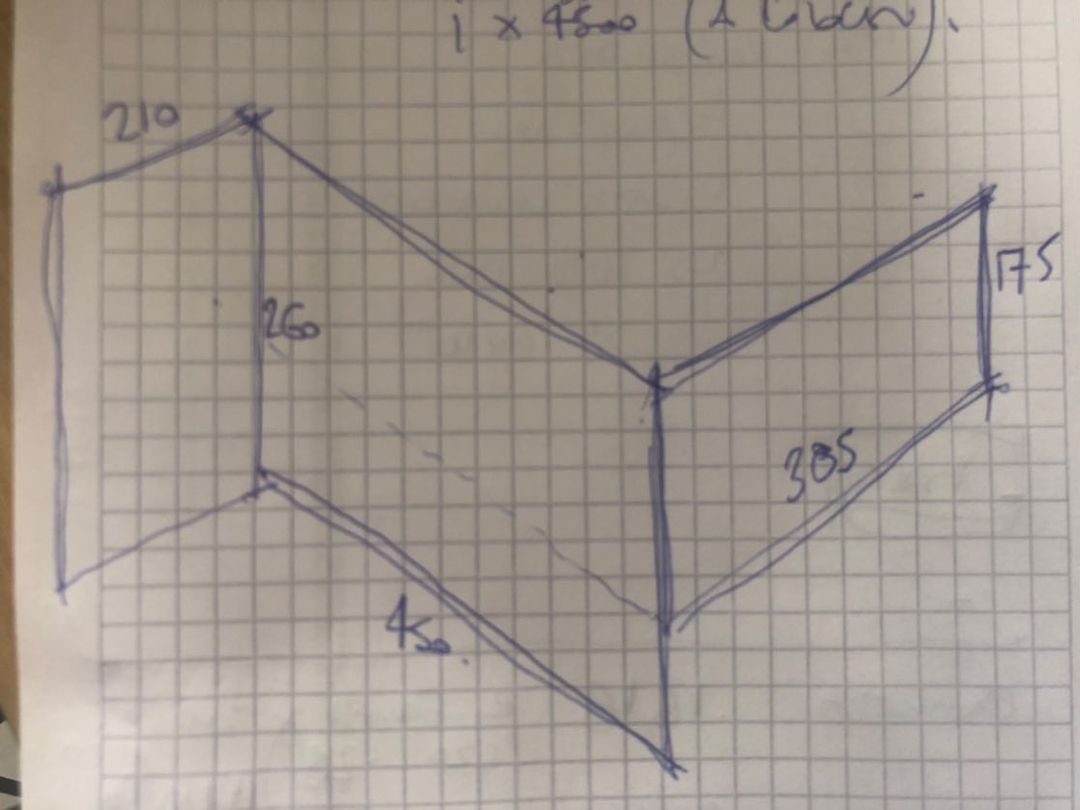 1 x 4500 (1
210
260
175
385
450